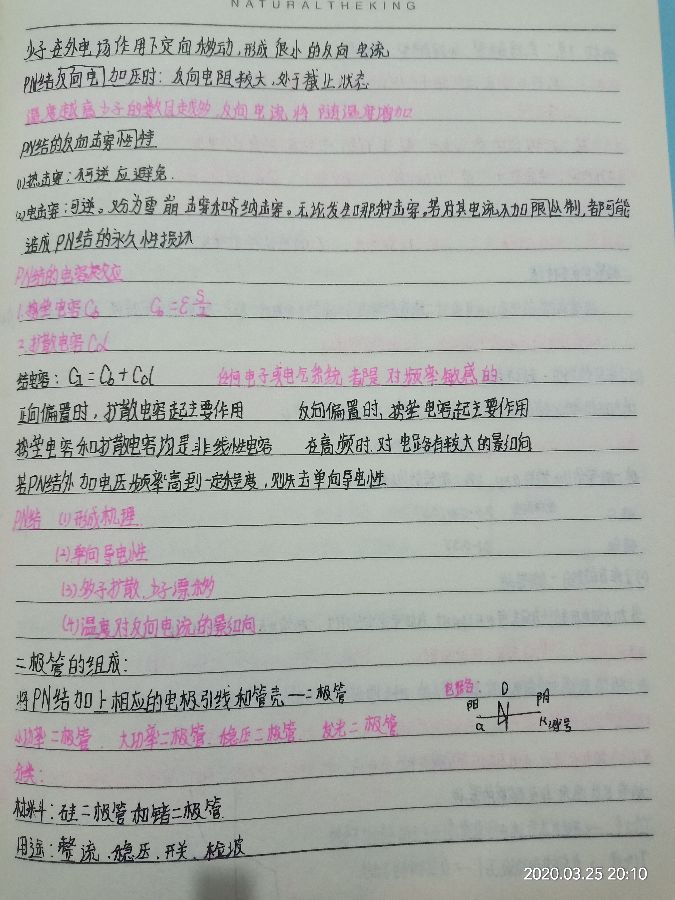 NATURALTHEKING
少子在外电场作用下定向移动,形成很小的反向电流
PN结反向电加压时:反向电阻较大,处于截止状态
温度越高少子的数目越多,反向电流将随温度增加
PN结的反向击穿性特
(1)热击穿:不可逆 应避免.
(2)电击穿:可逆。又分为雪崩击穿和齐纳击穿。无论发生哪种击穿,若对其电流不加限以制,都可能
造成PN结的永久性损坏
PN结的电容效应
1.势垒电容Cb Cb=ε S/
2.扩散电容Cd
结电容:CJ=Cb+Cd 任何电子或电气系统都是对频率敏感的.
正向偏置时,扩散电容起主要作用 反向偏置时,势垒电容起主要作用
势垒电容和扩散电容均是非线性电容 在高频时对电路有较大的影响
若PN结外加电压频率高到一定程度,则失去单向导电性
PN结 (1)形成机理
(2)单向导电性
(3)多子扩散、少子漂移
(4)温度对反向电流的影响.
二极管的组成:
将PN结加上相应的电极引线和管壳一二极管
小功率二极管、大功率二极管、稳压二极管、发光二极管
D
阳 阴
a K 号
分类:
材料:硅二极管和锗二极管
用途:整流、稳压、开关、检波
2020.03.25 20:10